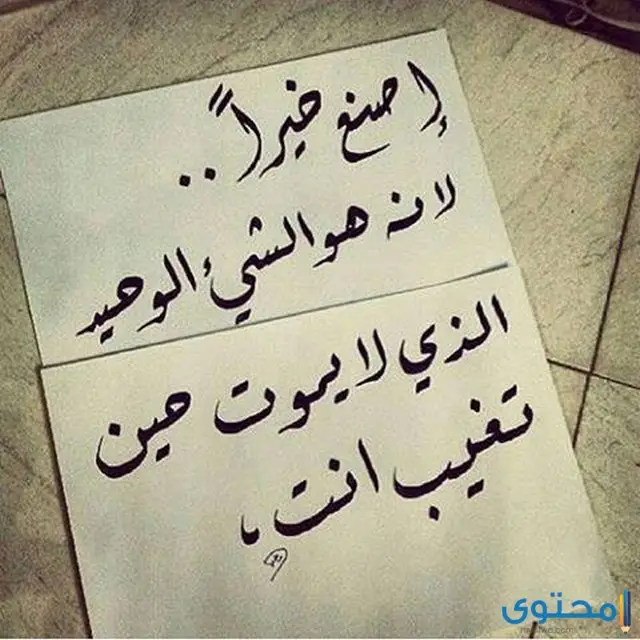 إصنع خيراً..
لانه هو الشيء الوحيد
الذي لا يموت حين
تغيب انت،
محتوى